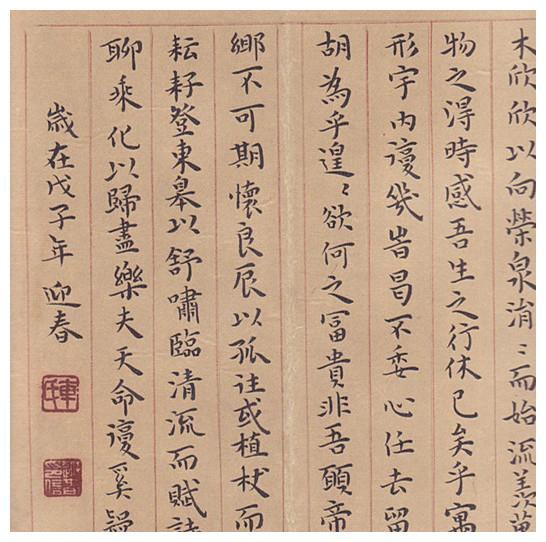 木欣欣以向榮泉涓〻而始流羨萬
物之得時感吾生之行休已矣乎寓
形宇内復幾旹曷不委心任去留
胡為乎遑〻欲何之冨貴非吾願帝
鄉不可期懷良辰以孤往或植杖而
耘耔登東皋以舒嘯臨清流而賦詩
聊乘化以歸盡樂夫天命復奚疑
歲在戊子年迎春